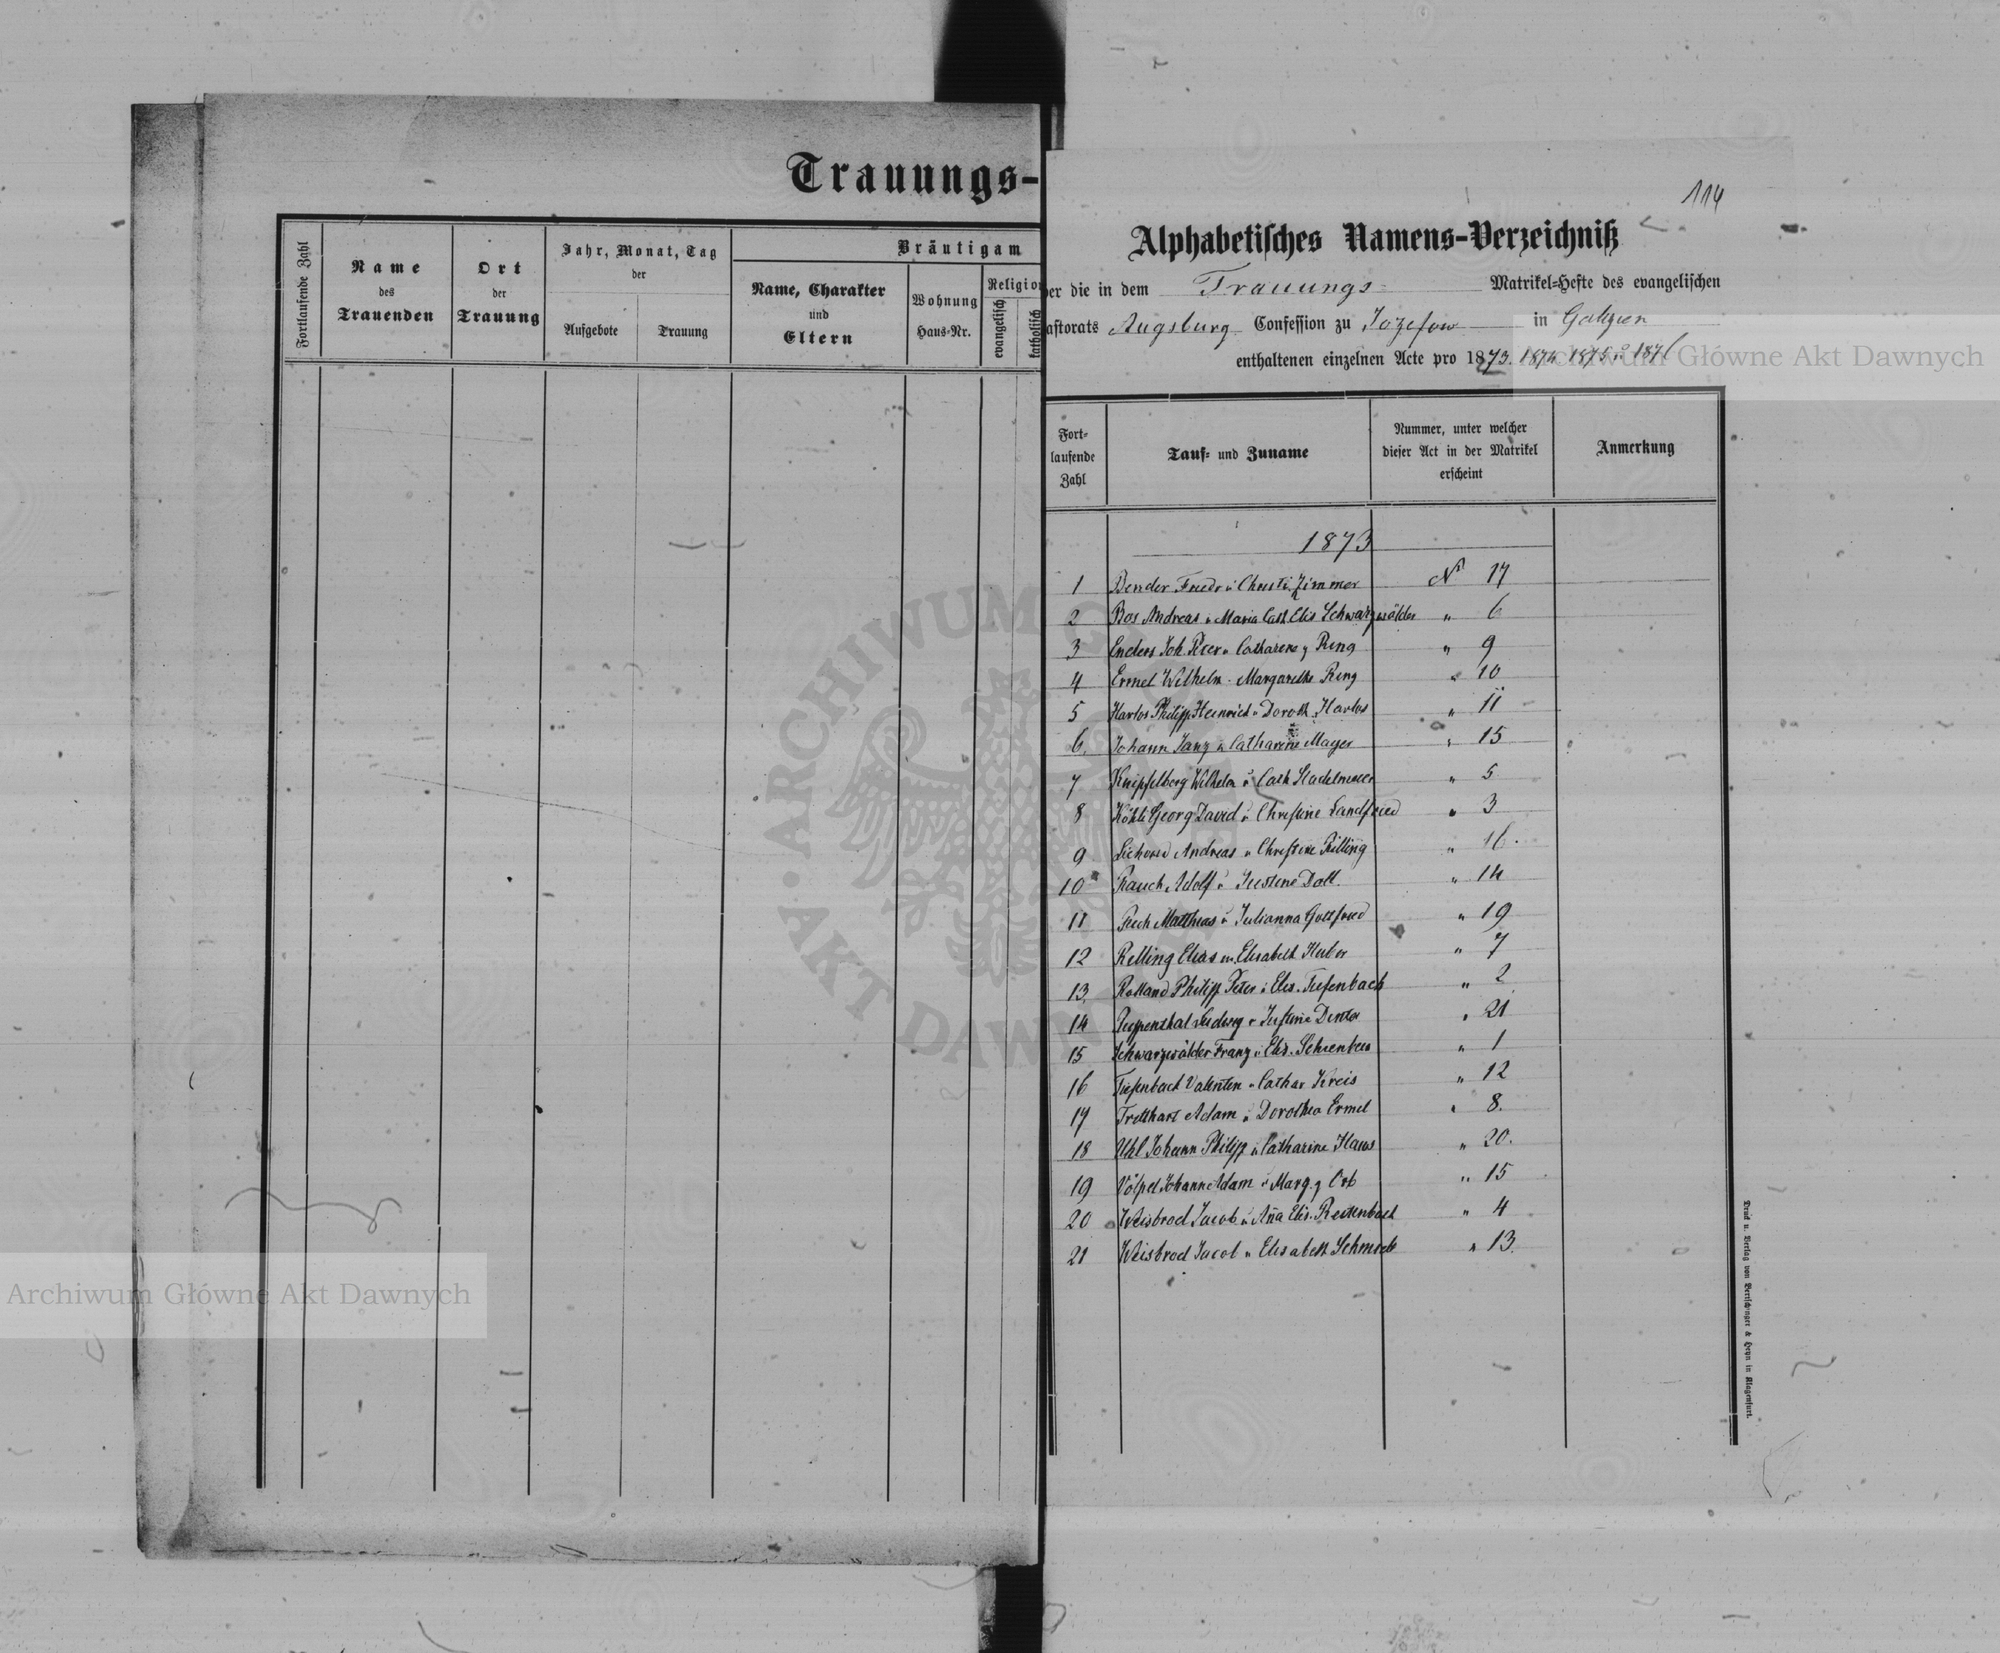 Trauungs-
Fortlaufende Zahl
Name
des
Trauenden
Ort
der
Trauung
Jahr, Monat, Tag
der
Aufgebote
Trauung
Bräutigam
Name, Charakter
und
Eltern
Wohnung
Haus-Nr.
Religion
evangelisch
katholisch
114
Alphabetisches Namens-Verzeichniß
er die in dem Trauungs- Matrikel-Hefte des evangelischen
astorats Augsburg Confession zu Jozefow in Galizien
enthaltenen einzelnen Acte pro 1873. 1874 1875 u 1876
Fort-
laufende
Zahl
Tauf- und Zuname
Nummer, unter welcher
dieser Act in der Matrikel
erscheint
Anmerkung
1873
1 Bender Friedr u Christi. Zimmer Nr 17
2 Bos Andreas u Maria Cath Elis Schwarzwälder " 6
3 Enders Joh. Peter u Catharine Ring " 9
4 Ermel Wilhelm Margarethe Ring " 10
5 Harlos Philipp Heinrich u Doroth. Harlos " 11
6. Johann Janz u Catharine Mayer " 15
7 Wilhelm u Cath " 5
8 Georg David u Christine Landfried " 3
9 Andreas u Christine Rilling " 16.
10 Rauch Adolf u Justine Doll. " 14
11 Matthias u Julianna Gottfried " 19
12 Relling Elias u Elisabeth Huber " 7
13. Rolland Philipp Peter u Elis. Tiefenbach " 2
14 Ludwig u Justine " 21
15 Schwarzwälder Franz u Elis. " 1
16 Tiefenbach Valentin u Cathar Kreis " 12
17 Adam u Dorothea Ermel " 8.
18 Uhl Johann Philipp u Catharine Haas " 20.
19 Völpel Johann Adam u Marg. Orb " 15
20 Weisbrod Jacob u Ana Elis. " 4
21 Weisbrod Jacob u Elisabeth " 13.
Druck u. Verlag von Bertschinger & Heyn in Klagenfurt.
Archiwum Główne Akt Dawnych
Archiwum Główne Akt Dawnych
ARCHIWUM
AKT DAWNYCH